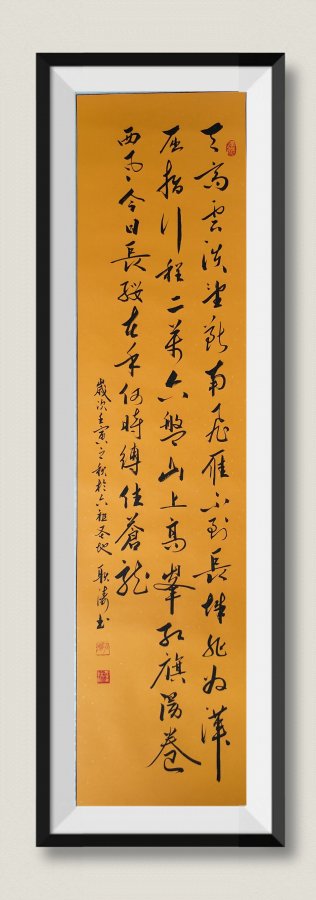 天高雲淡望斷南飛雁不到長城非好漢
屈指行程二萬六盤山上高峯紅旗漫卷
西風今日長纓在手何時縛住蒼龍
歲次壬寅之秋於六祖圣地 耿濤书